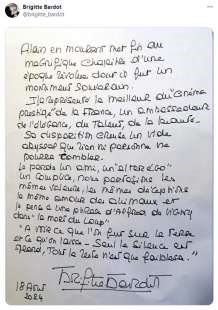 Brigitte Bardot
@brigitte_bardot
Alain en mourant met fin au
magnifique chapitre d'une
époque révolue dont il fut un
monument souverain.
Il représentait le meilleur du "Cinéma
prestige" de la France, un ambassadeur
de l'élégance, du talent, de la beauté.
Sa disparition creuse un vide
abyssal que rien ni personne ne
pourra combler.
Je perds un ami, un "alter ego"
un complice, nous partagions les
mêmes valeurs, les mêmes déceptions
le même amour des animaux et
je pense à une phrase d'Alfred de Vigny
dans la mort du Loup"
"A voir ce que l'on fut sur la Terre
et ce qu'on laisse - Seul le silence est
grand, Tout le reste n'est que faiblesse."
Brigitte Bardot
18 Août
2024